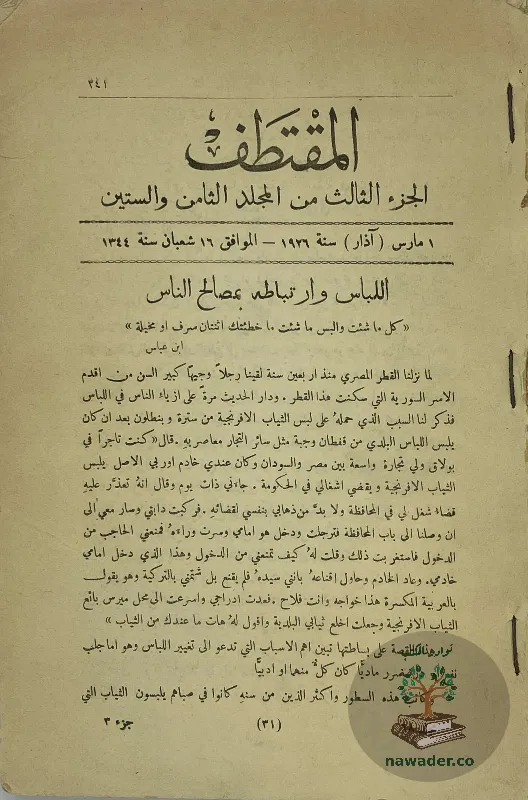 ٣٤١
المقتطف
الجزء الثالث من المجلد الثامن والستين
١ مارس ( آذار ) سنة ١٩٢٦ – الموافق ١٦ شعبان سنة ١٣٤٤
اللباس وارتباطه بمصالح الناس
« كل ما شئت والبس ما شئت ما خطئتك اثنتان سرف او مخيلة »
ابن عباس
لما نزلنا القطر المصري منذ اربعين سنة لقينا رجلاً وجيهاً كبير السن من اقدم
الاسر السورية التي سكنت هذا القطر . ودار الحديث مرةً على ازياء الناس في اللباس
فذكر لنا السبب الذي حمله على لبس الثياب الافرنجية من سترة وبنطلون بعد ان كان
يلبس اللباس البلدي من قفطان وجبة مثل سائر التجار معاصريه . قال « كنت تاجراً في
بولاق ولي تجارة واسعة بين مصر والسودان وكان عندي خادم اوربي الاصل يلبس
الثياب الافرنجية ويقضي اشغالي في الحكومة . جاءني ذات يوم وقال انهُ تعذَّر عليهِ
قضاء شغل لي في المحافظة ولا بدَّ من ذهابي بنفسي لقضائه . فركبت دابتي وسار معي الى
ان وصلنا الى باب المحافظة فترجلت ودخل هو امامي وسرت وراءهُ فمنعني الحاجب من
الدخول فاستغربت ذلك وقلت لهُ كيف تمنعني من الدخول وهذا الذي دخل امامي
خادمي . وعاد الخادم وحاول اقناعهُ بانني سيدهُ فلم يقنع بل شتمني بالتركية وهو يقول
بالعربية المكسرة هذا خواجه وانت فلاح . فعدت ادراجي واسرعت الى محل ميرس بائع
الثياب الافرنجية وجعلت اخلع ثيابي البلدية واقول لهُ هات ما عندك من الثياب »
القصة على بساطتها تبين اهم الاسباب التي تدعو الى تغيير اللباس وهو اما جلب
ضرر ماديًّا كان كلٌّ منها او ادبيًّا
هذه السطور واكثر الذين من سنهِ كانوا في صباهم يلبسون الثياب التي
(٣١)
جزء ٣
نوادر الكتب
nawader.co